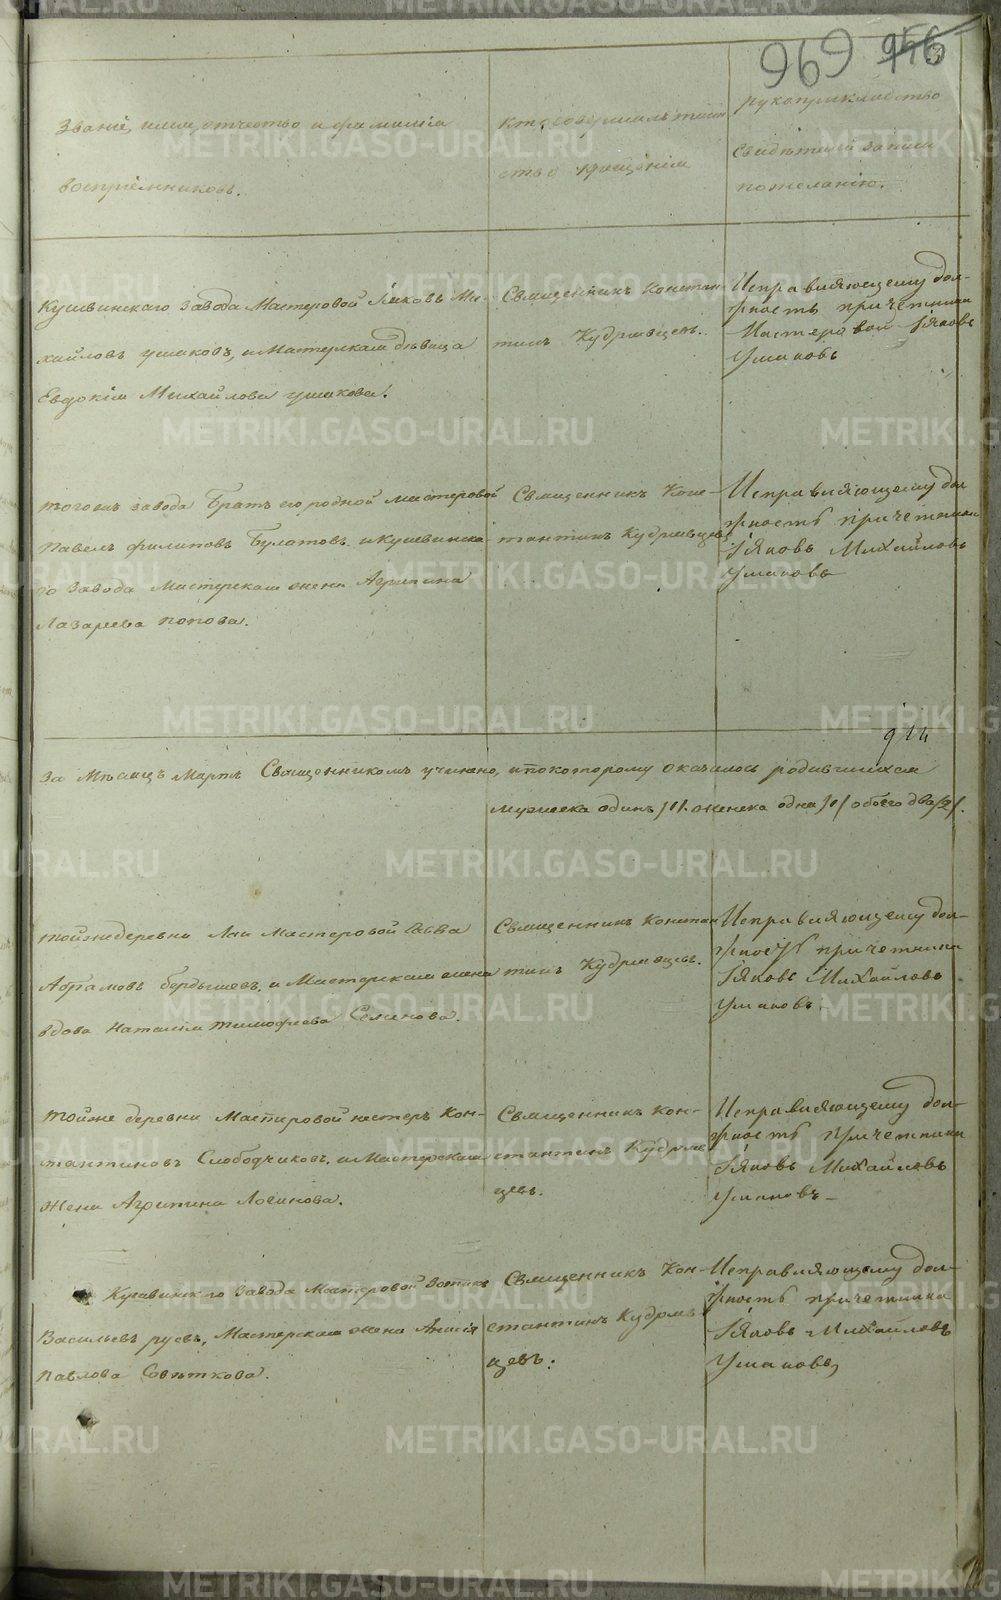 969 956
Званіе, имя, отчество и фамилія
воспріемниковъ.
Кто совершилъ таин
ство крещенія
рукоприкладство
свидѣтелей записи
по желанію.
Кушвинскаго завода Мастеровой Іяковъ Ми-
хайловъ ушаковъ, и Мастерская дѣвица
Евдокія Михайлова ушакова.
Священникъ Констан
тинъ Кудрявцевъ.
Исправляющему дол-
жность причетника
Мастеровой Іяковъ
Ушаковъ
тогожъ завода Братъ его родной мастеровой
Павелъ филиповъ Булатовъ и Кушвинска-
го Завода Мастерская жена Агрипина
Лазарева попова.
Священникъ Конс-
тантинъ Кудрявцевъ
Исправляющему дол
жность причетника
Іяковъ Михайловъ
Ушаковъ
За Мѣсяцъ Мартъ Священникомъ учинено, и по которому оказалось родившихся
мужеска одинъ /1/. женска одна /1/ обоего два /2/.
тойже деревни Лаи Мастеровой Савва
Абрамовъ бердышевъ, и Мастерская жена
вдова Наталія тимофеева Семенова.
Священникъ Констан
тинъ Кудрявцевъ.
Исправляющему дол-
жность причетника
Іяковъ Михайловъ
Ушаковъ.
тойже деревни Мастеровой нестеръ Кон-
тантиновъ Слободчиковъ, и Мастерская
Жена Агрипина Логинова.
Священникъ Кон-
стантинъ Кудряв
цевъ.
Исправляющему дол-
жность причетника
Іяковъ Михайловъ
Ушаковъ
Завода Мастеровой
Васильевъ русвъ, Мастерская жена
Павлова Совѣткова.
Священникъ Кон-
стантинъ Кудряв
цевъ.
Исправляющему дол-
жность причетника
Іяковъ Михайловъ
Ушаковъ
METRIKI.GASO-URAL.RU